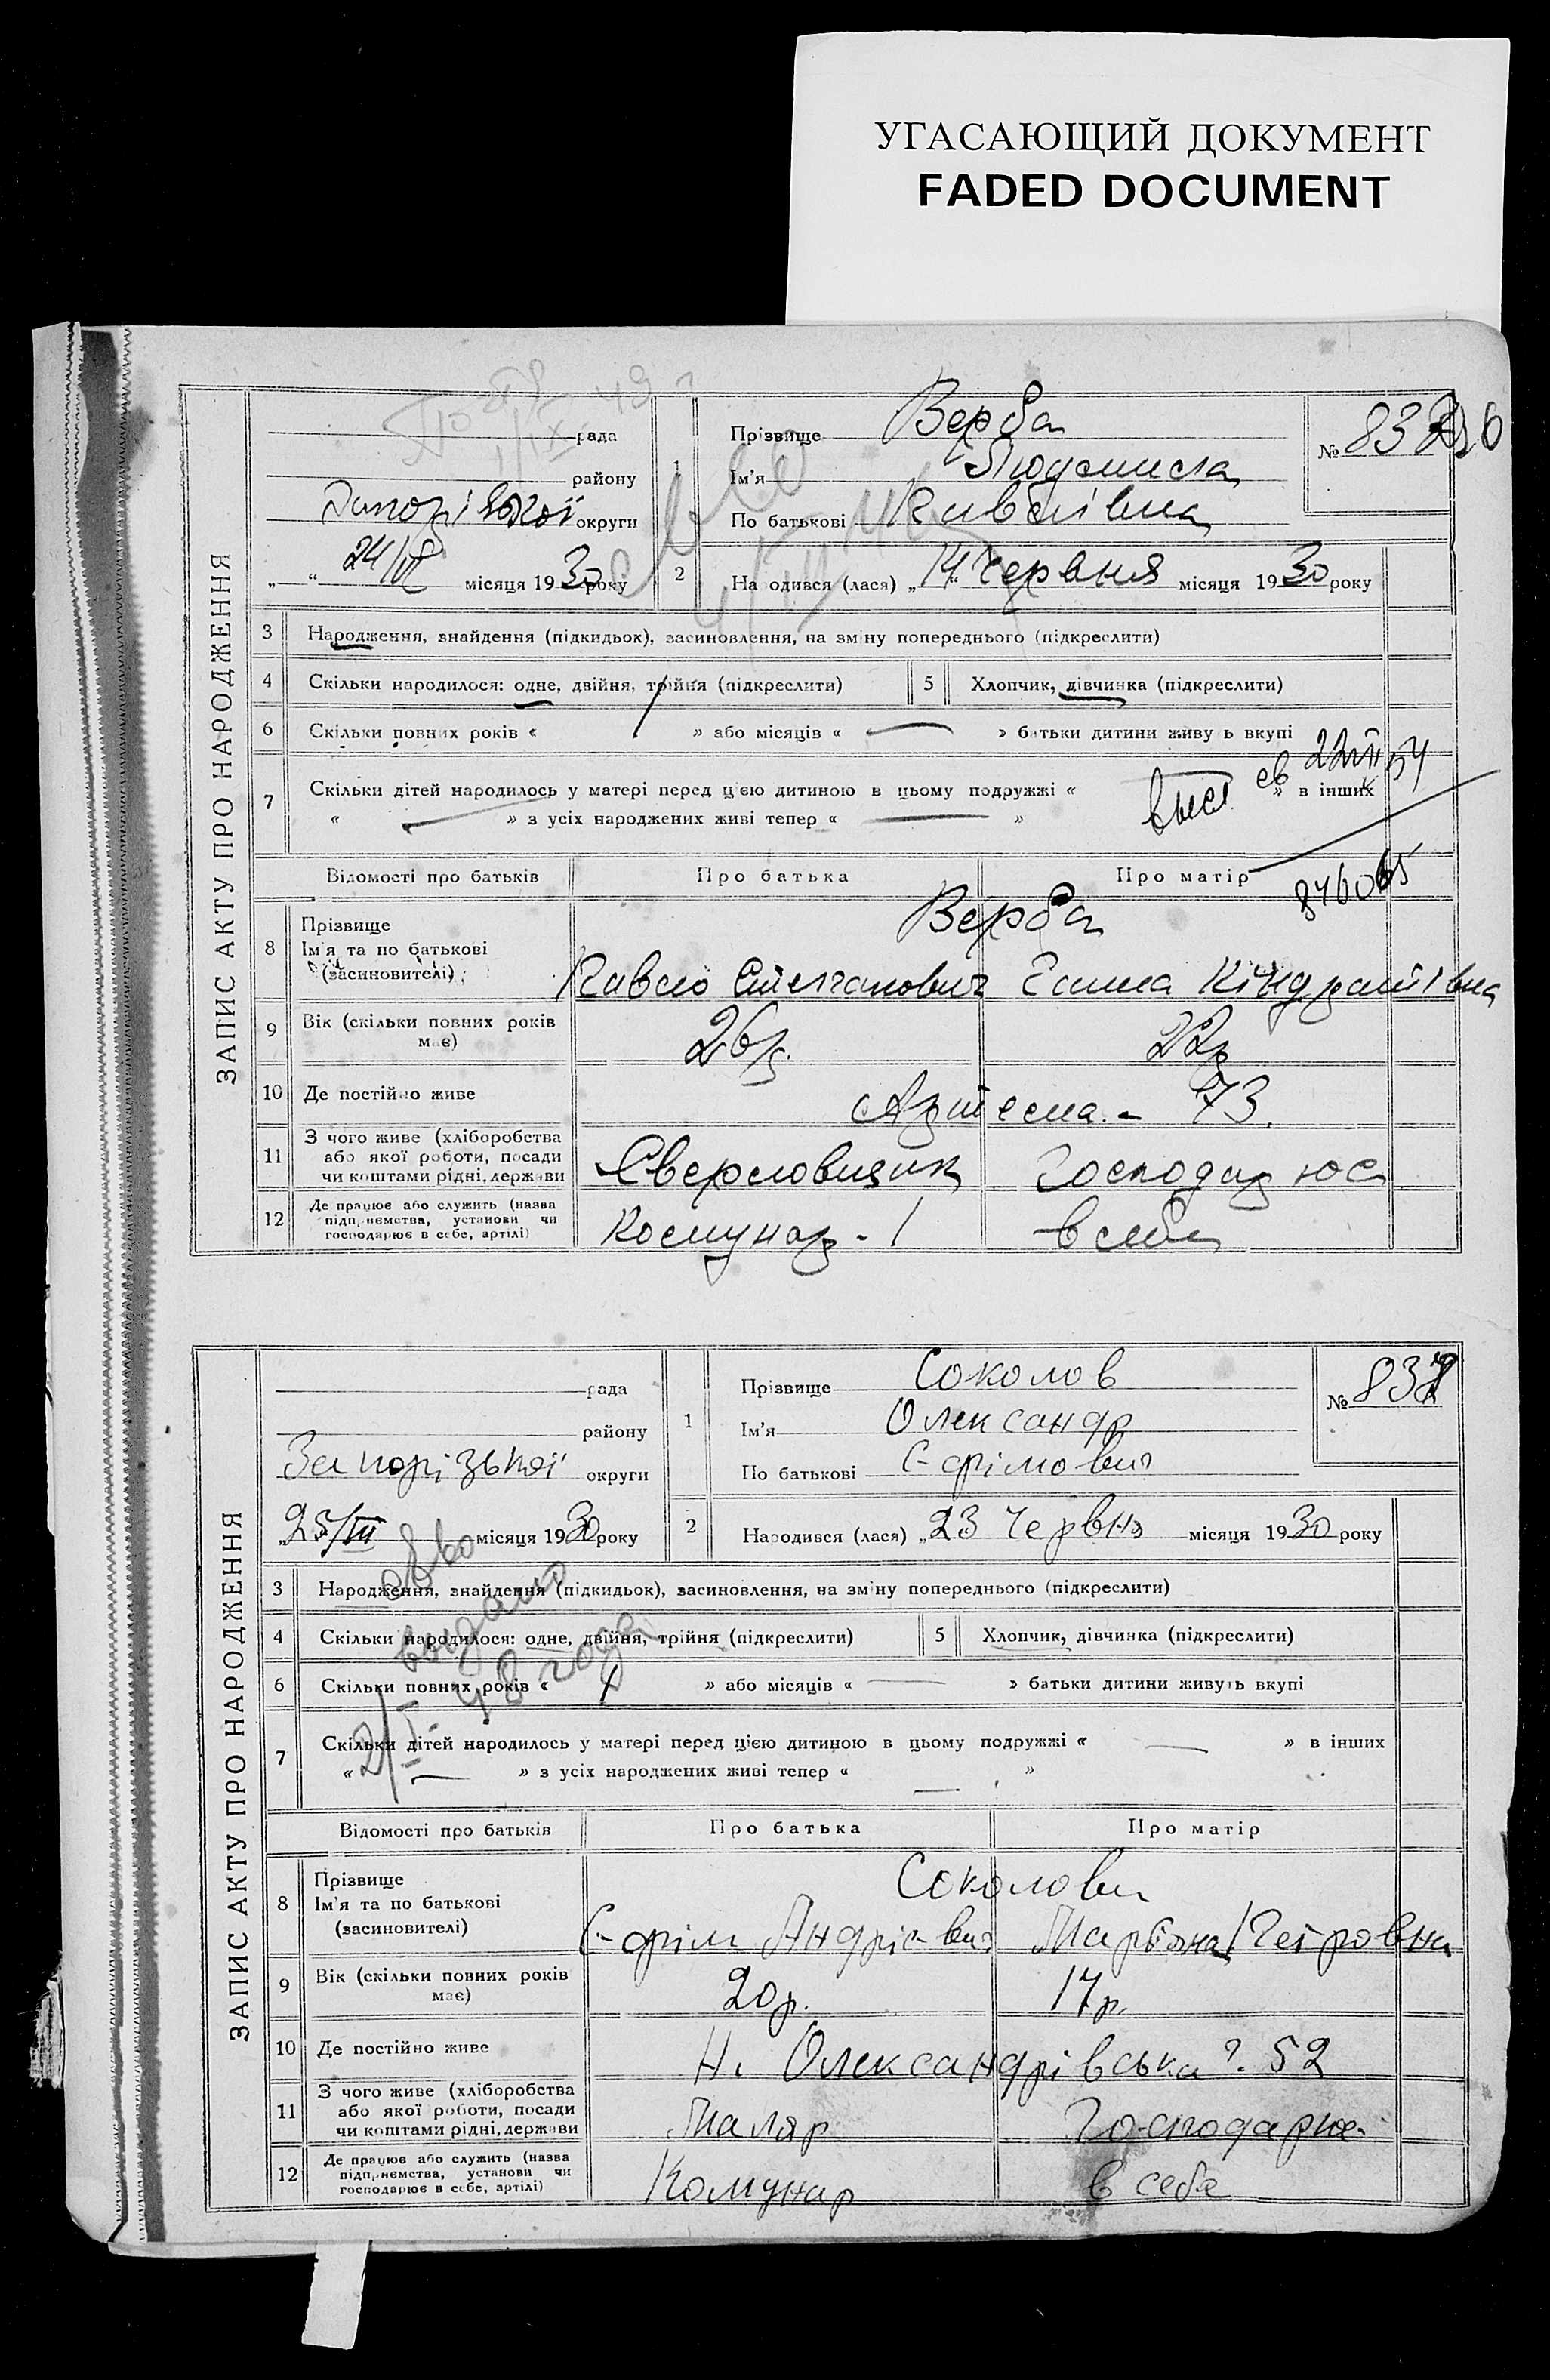 УГАСАЮЩИЙ ДОКУМЕНТ
FADED DOCUMENT
ЗАПИС АКТУ ПРО НАРОДЖЕННЯ
рада
району
Запорізької округи
„ “ 24/VI місяця 1930 року
1 Прізвище Верба
Ім'я Людмила
По батькові Павлівна
№ 836
2 Народився (лася) „14“ Червня місяця 1930 року
3 Народження, знайдення (підкидьок), засиновлення, на зміну попереднього (підкреслити)
4 Скільки народилося: одне, двійня, трійня (підкреслити)
5 Хлопчик, дівчинка (підкреслити)
6 Скільки повних років « » або місяців « — » батьки дитини живуть вкупі
7 Скільки дітей народилось у матері перед цією дитиною в цьому подружжі « » в інших
« — » з усіх народжених живі тепер « — »
846065
Відомості про батьків Про батька Про матір
8 Прізвище
Ім'я та по батькові
(засиновителі)
Верба
Павло Степанович Ганна Кіндратівна
9 Вік (скільки повних років має) 26р. 22р
10 Де постійно живе Артема - 73.
11 З чого живе (хліборобства
або якої роботи, посади
чи коштами рідні, держави
Сверловщик Господарює
12 Де працює або служить (назва
підприємства, установи чи
господарює в себе, артілі)
Комунар - 1 в себе
ЗАПИС АКТУ ПРО НАРОДЖЕННЯ
рада
району
Запорізької округи
„25/VI місяця 1930 року
1 Прізвище Соколов
Ім'я Олександр
По батькові Єфімович
№ 837
2 Народився (лася) „23 Червня місяця 1930 року
3 Народження, знайдення (підкидьок), засиновлення, на зміну попереднього (підкреслити)
4 Скільки народилося: одне, двійня, трійня (підкреслити)
5 Хлопчик, дівчинка (підкреслити)
6 Скільки повних років « 1 » або місяців « — » батьки дитини живуть вкупі
7 Скільки дітей народилось у матері перед цією дитиною в цьому подружжі « — » в інших
« — » з усіх народжених живі тепер « — »
св-во
выдано
2/I- 48 года
Відомості про батьків Про батька Про матір
8 Прізвище
Ім'я та по батькові
(засиновителі)
Соколови
Єфім Андрієвич Мар'яна Петровна
9 Вік (скільки повних років має) 20р. 17р.
10 Де постійно живе Н. Олександрівська 52
11 З чого живе (хліборобства
або якої роботи, посади
чи коштами рідні, держави
Маляр Господарює
12 Де працює або служить (назва
підприємства, установи чи
господарює в себе, артілі)
Комунар в себе